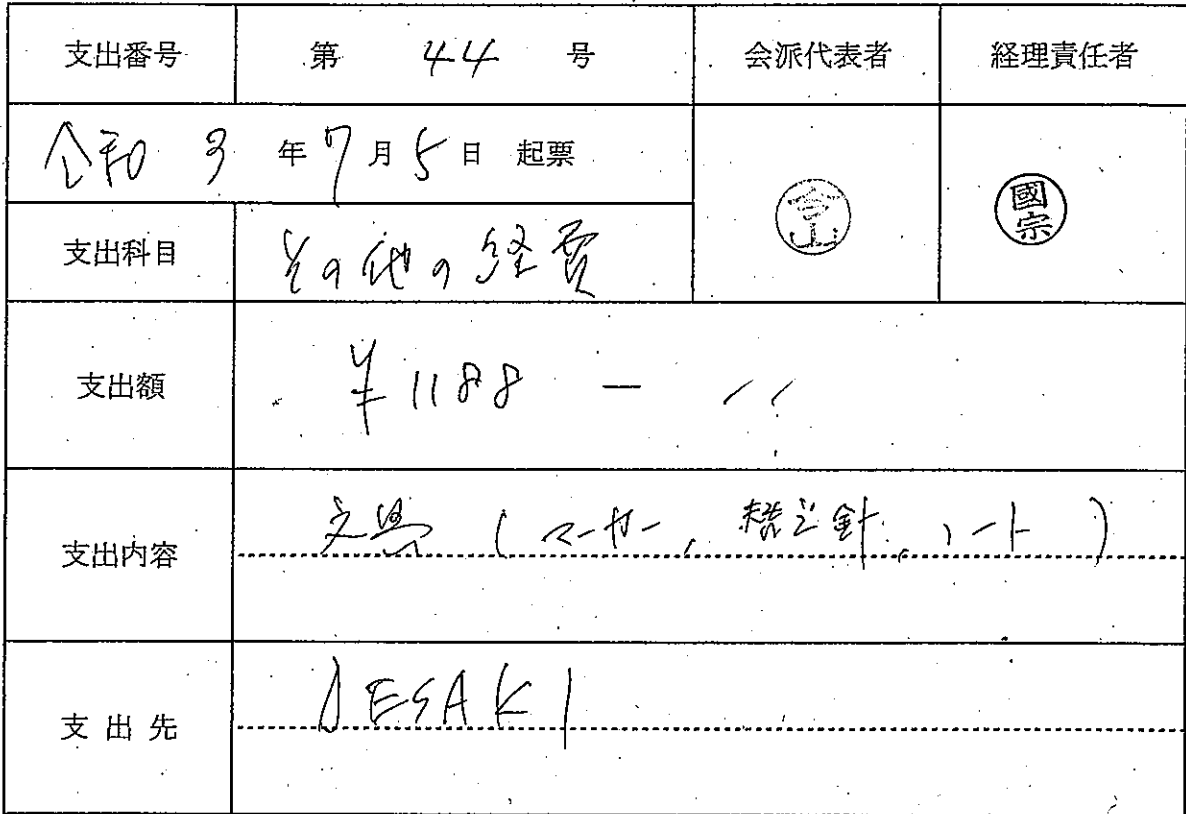 支出番号 第 44 号 会派代表者 経理責任者
令和 3 年 7 月 5 日 起票
今山
國宗
支出科目 その他の経費
支出額 ¥1188 ー
支出内容 文具 (マーカー, 綴じ針, ノート)
支出先